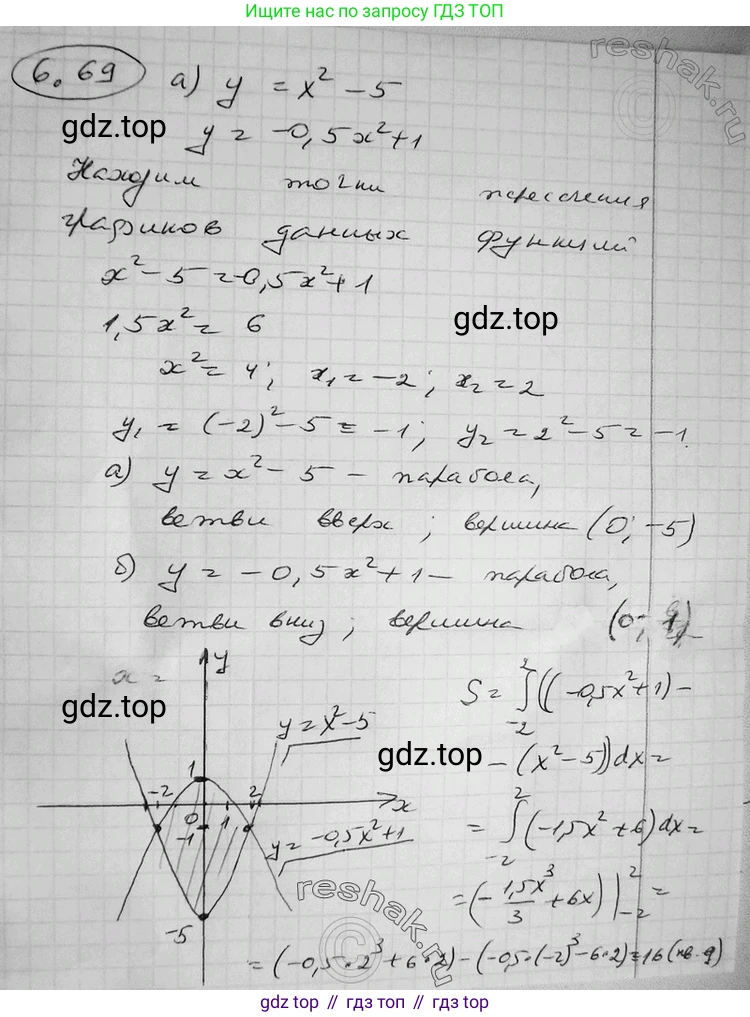 Ищите нас по запросу ГДЗ ТОП
6.69 а) y = x² - 5
reshak.ru
gdz.top
y = -0,5x² + 1
Находим точки пересечения
графиков данных функций
x² - 5 = -0,5x² + 1
1,5x² = 6
gdz.top
x² = 4; x₁ = -2; x₂ = 2
y₁ = (-2)² - 5 = -1; y₂ = 2² - 5 = -1.
а) y = x² - 5 - парабола,
ветви вверх; вершина (0; -5)
б) y = -0,5x² + 1 - парабола,
ветви вниз; вершина (0; 1)
x =
y
gdz.top
y = x² - 5
S = ∫₋₂² ((-0,5x² + 1) -
gdz.top
- (x² - 5))dx =
1
-2
2
0
1
x
-1
y = -0,5x² + 1
= ∫₋₂² (-1,5x² + 6)dx =
-5
= (-1,5x³/3 + 6x)|₋₂² =
reshak.ru
= (-0,5·2³ + 6·2) - (-0,5·(-2)³ - 6·2) = 16 (кв. д)
gdz.top // гдз топ // гдз.top